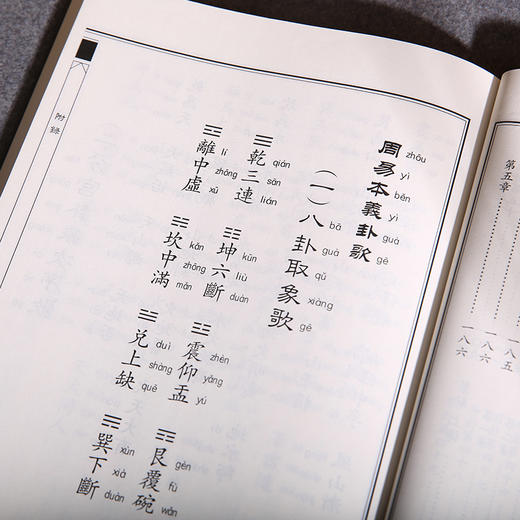 第五章
一八五
一八六
一八六
周易本義卦歌
zhōu yì běn yì guà gē
（一）八卦取象歌
bā guà qǔ xiàng gē
☰乾三連
qián sān lián
☷坤六斷
kūn liù duàn
☳震仰盂
zhèn yǎng yú
☶艮覆碗
gèn fù wǎn
☲離中虛
lí zhōng xū
☵坎中滿
kǎn zhōng mǎn
☱兌上缺
duì shàng quē
☴巽下斷
xùn xià duàn
附錄